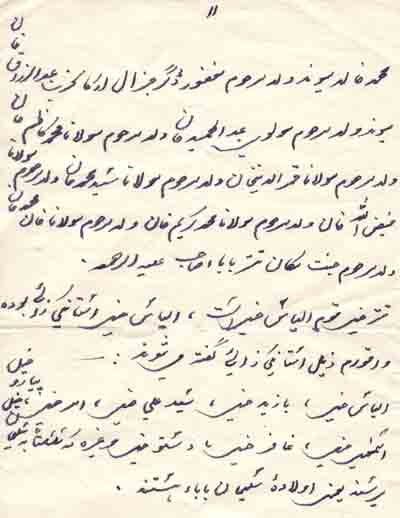 ۱۱
محمد خالد میوند ولد مرحوم مغفور ډگر جنرال ارکان حرب عبدالرزاق خان
میوند ولد مرحوم مولوی عبدالمجید خان ولد مرحوم مولانا محمد کاظم خان
ولد مرحوم مولانا قمرالدین خان ولد مرحوم مولانا شید محمد خان ولد مرحوم مولانا
فیض الله خان ولد مرحوم مولانا محمد کریم خان ولد مرحوم مولانا خان محمد خان
ولد مرحوم جنت مکان تتر بابا صاحب علیه الرحمه.
تتر خیل قوم الیاس خیل است، الیاس خیل اشتانیکزائی بوده
و اقوام ذیل اشتانیکزائی گفته میشوند :ـ
الیاس خیل، بازید خیل، شید علی خیل، امر خیل، پیارو خیل
خیل، غافر خیل، و غیره که به
یعنی اولادۀ سلیمان بابا هستند.